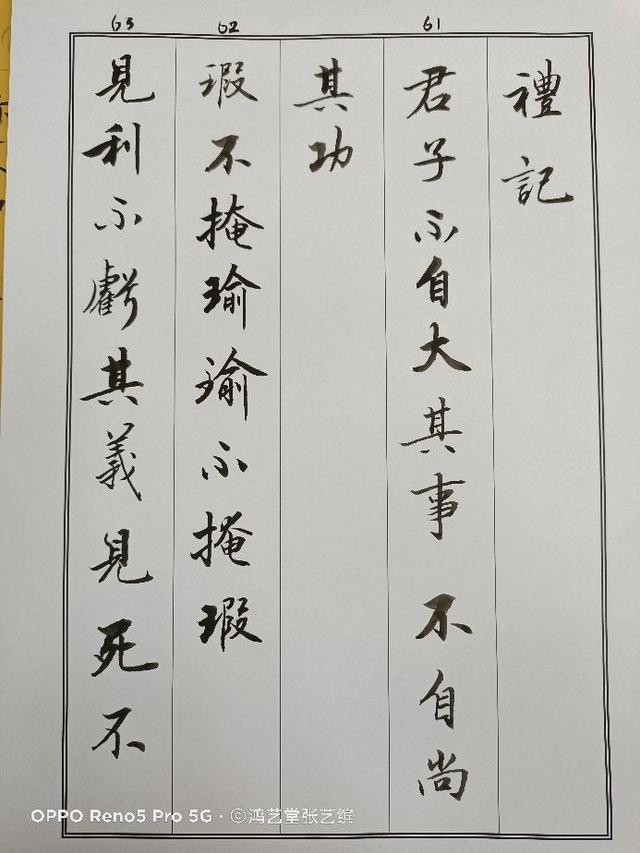 禮記
61
君子不自大其事不自尚
其功
62
瑕不掩瑜瑜不掩瑕
63
見利不虧其義見死不
OPPO Reno5 Pro 5G · ©鸿艺堂张艺缤